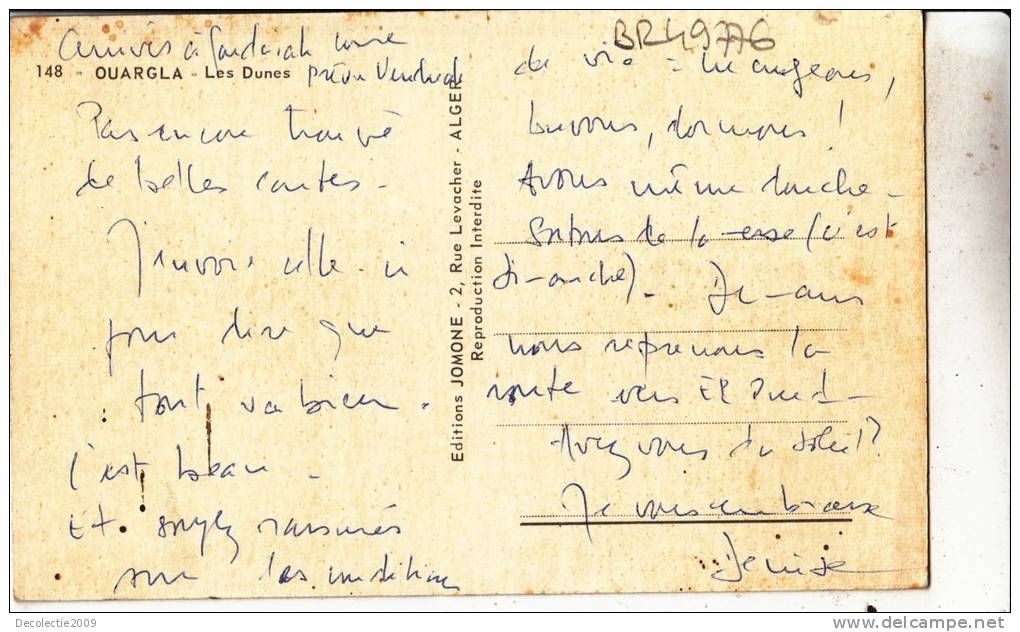 Arrivés à Gardaiah comme
prévu Vendredi
148 - OUARGLA - Les Dunes
Pas encore trouvé
de belles cartes -
J'envoie celle-ci
pour dire que
tout va bien.
C'est beau -
Et soyez rassurés
sur les conditions
Editions JOMONE - 2, Rue Levacher - ALGER
Reproduction Interdite
BR49776
de vie = mangeons,
buvons, dormons !
Avons même douche -
Sortons de la messe (c'est
dimanche) -
nous reprenons la
route vers El
Avez vous du soleil ?
Je vous embrasse
Denise
Decolectie2009
delcampe.net